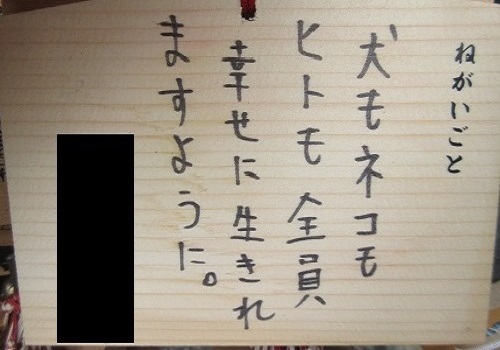 ねがいごと
犬もネコも
ヒトも全員
幸せに生きれ
ますように。